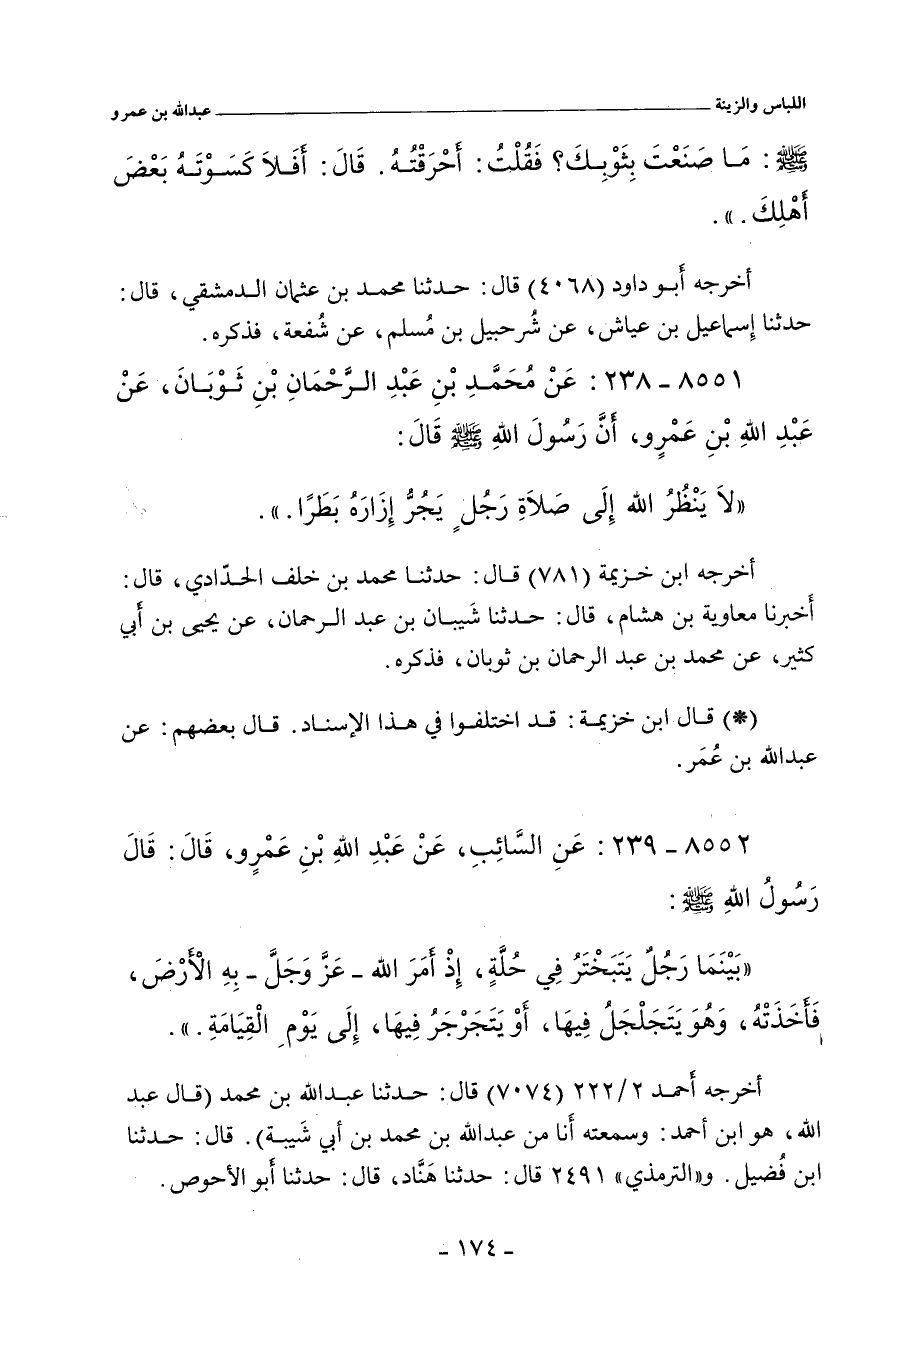 اللباس والزينة ــــــــــــــــــــــــــــــــــــ عبدالله بن عمرو
ﷺ : مَا صَنَعْتَ بِثَوْبِكَ؟ فَقُلْتُ: أَحْرَقْتُهُ. قَالَ: أَفَلاَ كَسَوْتَهُ بَعْضَ
أَهْلِكَ.».
أخرجه أبو داود (٤٠٦٨) قال: حدثنا محمد بن عثمان الدمشقي، قال:
حدثنا إسماعيل بن عياش، عن شُرحبيل بن مُسلم، عن شُفعة، فذكره.
٨٥٥١ ـ ٢٣٨ : عَنْ مُحَمَّدِ بْنِ عَبْدِ الرَّحْمَانِ بْنِ ثَوْبَانَ، عَنْ
عَبْدِ اللهِ بْنِ عَمْرٍو، أَنَّ رَسُولَ اللهِ ﷺ قَالَ:
«لاَ يَنْظُرُ الله إِلَى صَلاَةِ رَجُلٍ يَجُرُّ إِزَارَهُ بَطَرًا.».
أخرجه ابن خزيمة (٧٨١) قال: حدثنا محمد بن خلف الحدّادي، قال:
أخبرنا معاوية بن هشام، قال: حدثنا شَيبان بن عبد الرحمان، عن يحيى بن أبي
كثير، عن محمد بن عبد الرحمان بن ثوبان، فذكره.
(*) قال ابن خزيمة: قد اختلفوا في هذا الإسناد. قال بعضهم: عن
عبدالله بن عُمَر.
٨٥٥٢ ـ ٢٣٩ : عَنِ السَّائِبِ، عَنْ عَبْدِ اللهِ بْنِ عَمْرٍو، قَالَ: قَالَ
رَسُولُ اللهِ ﷺ :
«بَيْنَمَا رَجُلٌ يَتَبَخْتَرُ فِي حُلَّةٍ، إِذْ أَمَرَ الله ـ عَزَّ وَجَلَّ ـ بِهِ الْأَرْضَ،
فَأَخَذَتْهُ، وَهُوَ يَتَجَلْجَلُ فِيهَا، أَوْ يَتَجَرْجَرُ فِيهَا، إِلَى يَوْمِ الْقِيَامَةِ.».
أخرجه أحمد ٢/ ٢٢٢ (٧٠٧٤) قال: حدثنا عبدالله بن محمد (قال عبد
الله، هو ابن أحمد: وسمعته أنا من عبدالله بن محمد بن أبي شَيبة). قال: حدثنا
ابن فُضيل. و«الترمذي» ٢٤٩١ قال: حدثنا هَنَّاد، قال: حدثنا أبو الأحوص.
ـ ١٧٤ ـ